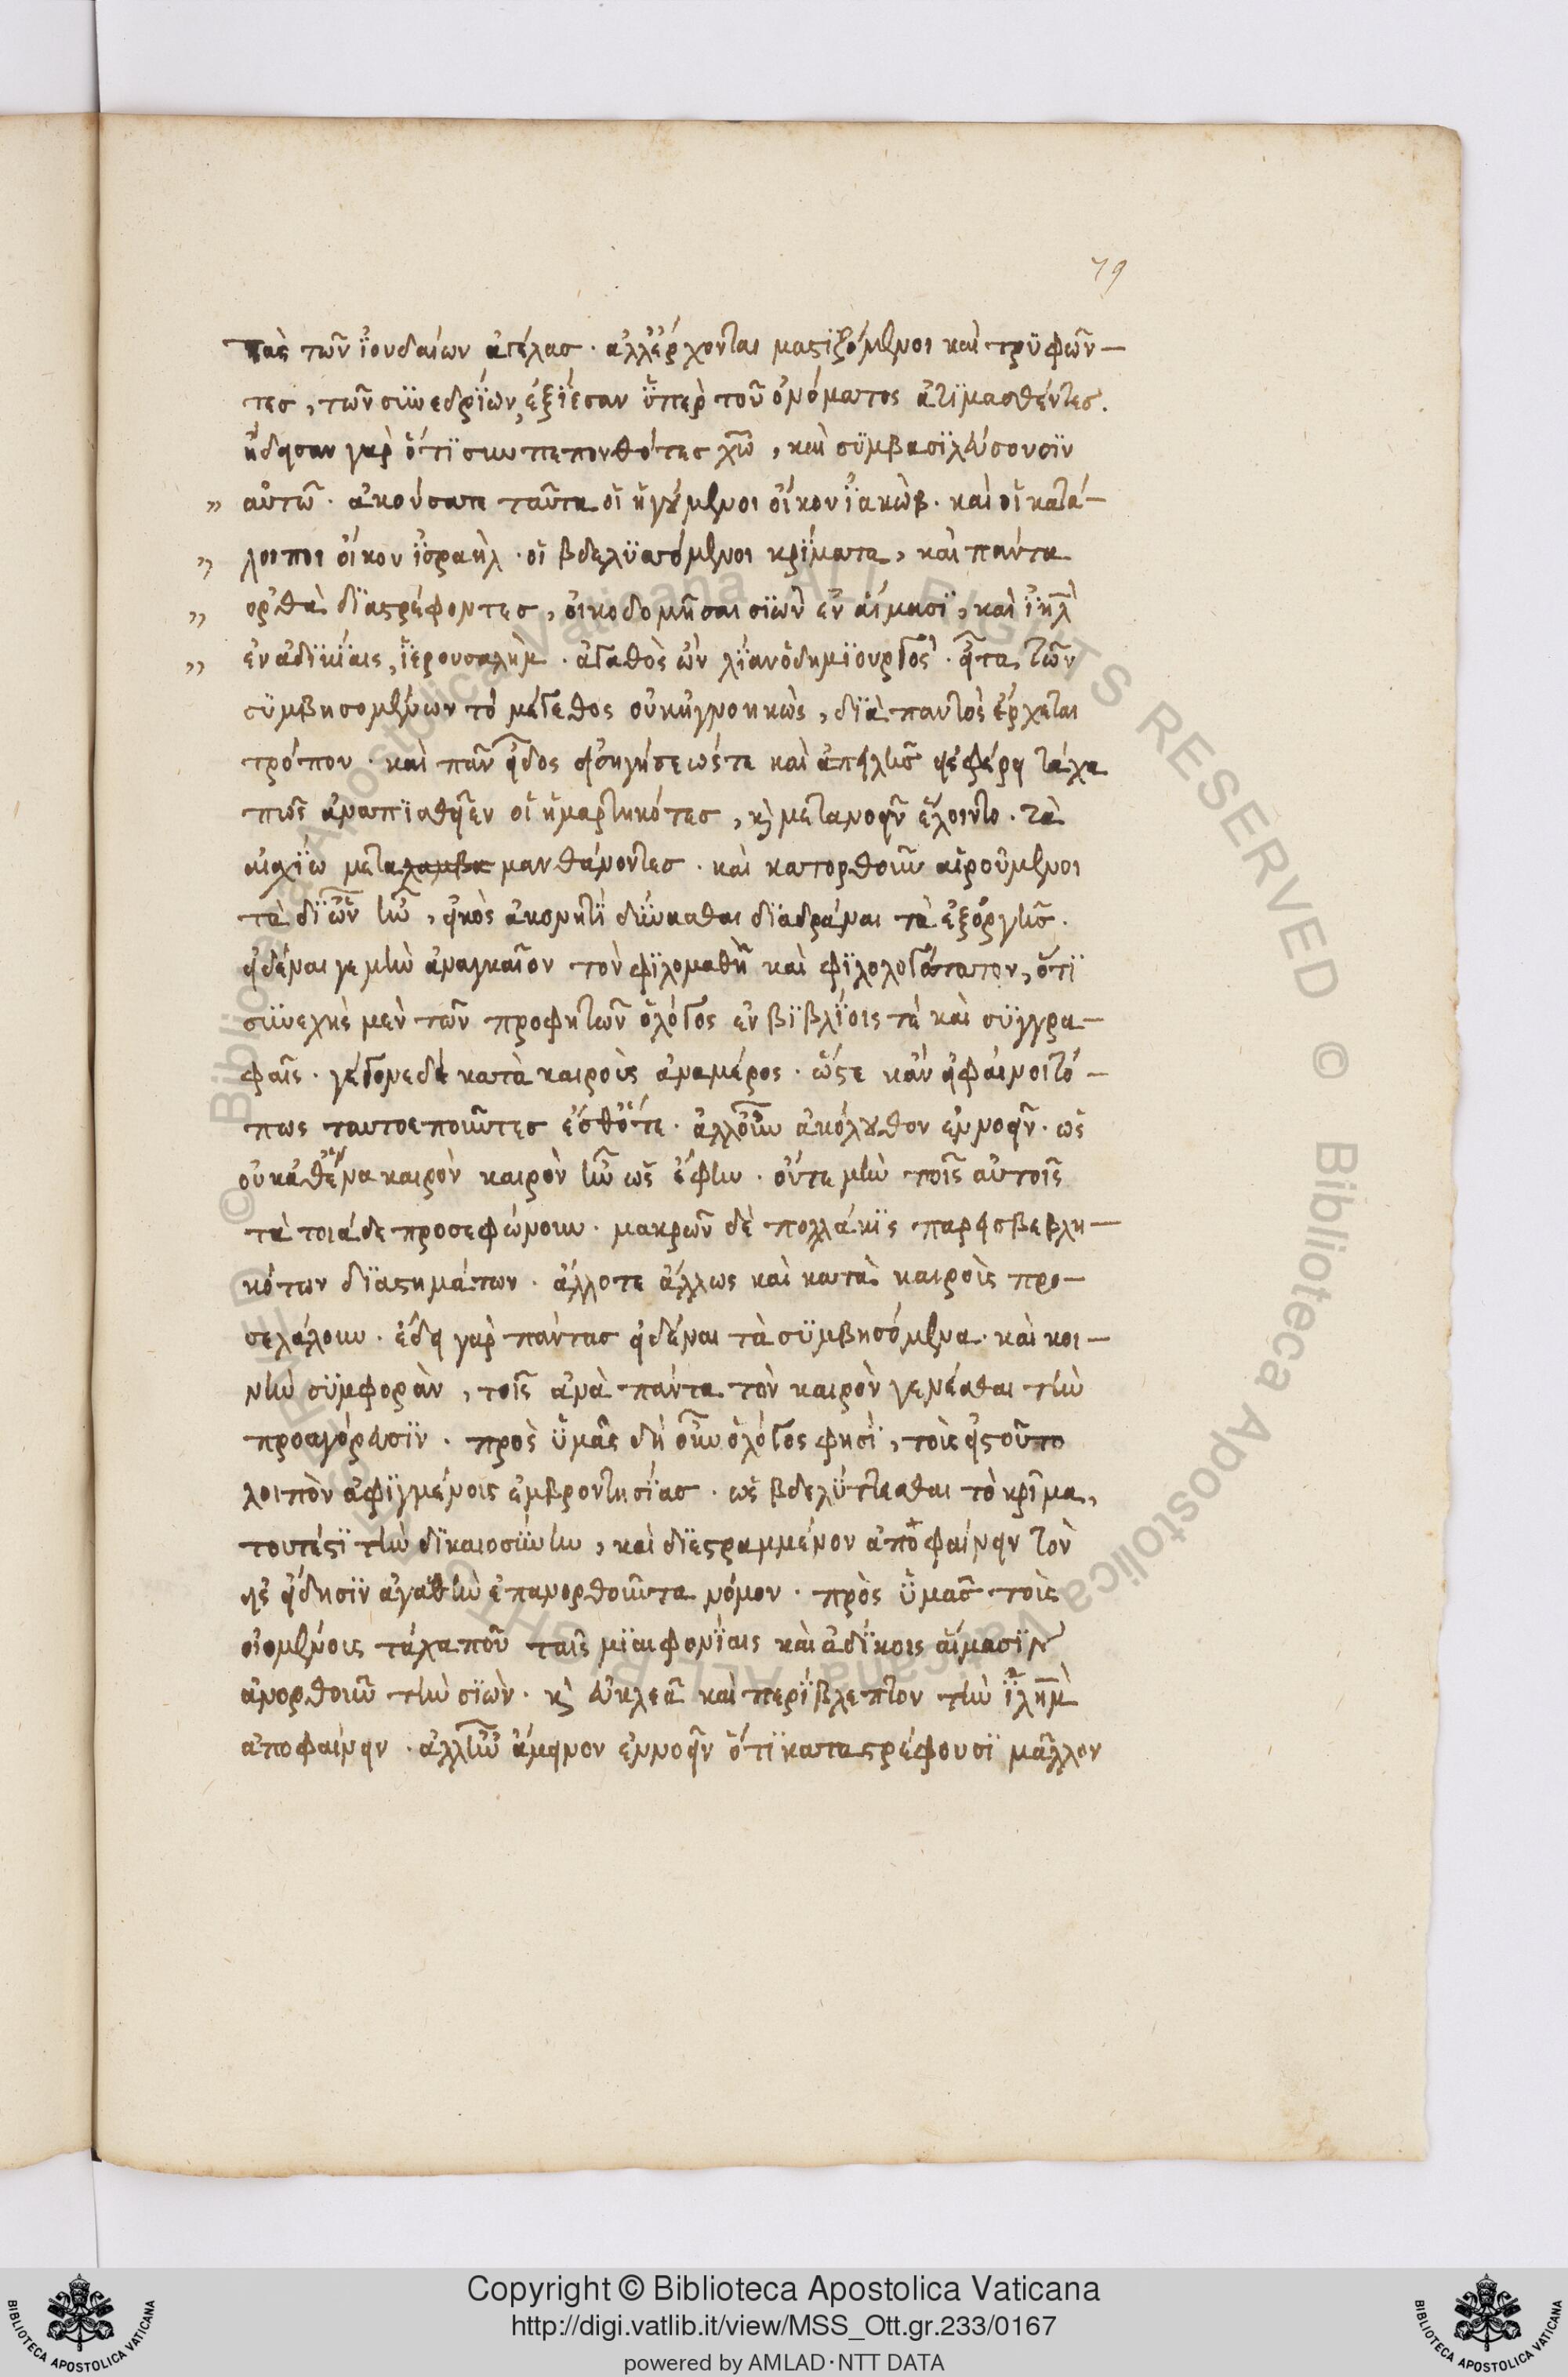 79
τὰς τῶν ἰουδαίων ἀγέλας · ἀλλ' ἔρχονται μαστιζόμενοι καὶ τρυφῶν-
τες, τῶν συνεδρίων, ἐξίεσαν ὑπὲρ τοῦ ὀνόματος ἀτιμασθέντες.
ᾔδεσαν γὰρ ὅτι συμπεπονθότες χῶ, καὶ συμβασιλεύσουσιν
» αὐτῶ · ἀκούσατε ταῦτα οἱ ἡγούμενοι οἴκου ἰακώβ · καὶ οἱ κατά-
» λοιποι οἴκου ἰσραήλ · οἱ βδελυσσόμενοι κρίματα, καὶ πάντα
» ορθὰ διαστρέφοντες, οἰκοδομῆσαι σιὼν ἐν αἵμασι, καὶ ἰηλὰ
» ἐν ἀδικίαις, ἱερουσαλὴμ · ἀγαθὸς ὢν λίαν ὁ δημιουργός · εἶτα τῶν
συμβησομένων τὸ μέγεθος οὐκ ἠγνοηκώς, διὰ παντὸς ἔρχεται
τρόπου · καὶ πᾶν εἶδος εἰσηγήσεώς τε καὶ ἀπειλῆς εἰσφέρει τάχα
πως ἀναπιασθεῖεν οἱ ἡμαρτηκότες, κ μετανοεῖν ἕλοιντο · τὰ
αἰσχίω μεταλαμβα μανθάνοντες · καὶ κατορθοῦν αἱρούμενοι
τὰ δι ὧν ἦν, εἰκὸς ἀκονητὶ δύνασθαι διαδράναι τὰ ἐξ ὀργῆς.
εἰδέναι γε μὴν ἀναγκαῖον τὸν φιλομαθῆ καὶ φιλολογώτατον, ὅτι
συνεχὴς μὲν τῶν προφητῶν ὁ λόγος ἐν βιβλίοις τὲ καὶ συγγρα-
φαῖς · γέγονε δὲ κατὰ καιροὺς ἀναμέρος · ὥστε κἂν εἰ φαίνοιτό-
πως ταυτοεποῦντες ἔσθ' ὅτε · ἀλλ' οὖν ἀκόλουθον ἐννοεῖν · ὡς
οὐ καθ' ἕνα καιρὸν καιρὸν ἦν ὡς ἔφην · οὔτε μὴν τοῖς αὐτοῖς
τὰ τοιάδε προσεφώνουν · μακρῶν δὲ πολλάκις παρεισβεβλη-
κότων διαστημάτων · ἄλλοτε ἄλλως καὶ κατὰ καιροὺς προ-
σελάλουν · ἔδει γὰρ πάντας εἰδέναι τὰ συμβησόμενα · καὶ κοι-
νὴν συμφορὰν, τοῖς ἀνὰ πάντα τὸν καιρὸν γενέσθαι τὴν
προαγόρευσιν · πρὸς ὑμᾶς δὴ οὖν ὁ λόγος φησὶ, τοὺς εἰς τοῦτο
λοιπὸν ἀφιγμένους ἐμβροντησίας · ὡς βδελύττεσθαι τὸ κρῖμα,
τουτέστι τὴν δικαιοσύνην, καὶ διεστραμμένον ἀποφαίνειν τὸν
εἰς εἴδησιν ἀγαθὴν ἐπανορθοῦντα νόμον · πρὸς ὑμᾶς τοὺς
οἰομένους τάχα που ταῖς μιαιφονίαις καὶ ἀδίκοις αἵμασιν
ἀνορθοῦν τὴν σιὼν · κ εὐκλεᾶ καὶ περίβλεπτον τὴν ἱλημ
ἀποφαίνειν · ἀλλ' ἦν ἄμεινον ἐννοεῖν ὅτι καταστρέφουσι μᾶλλον
© Biblioteca Apostolica Vaticana ALL RIGHTS RESERVED
Copyright © Biblioteca Apostolica Vaticana
http://digi.vatlib.it/view/MSS_Ott.gr.233/0167
powered by AMLAD·NTT DATA
BIBLIOTECA APOSTOLICA VATICANA
BIBLIOTECA APOSTOLICA VATICANA